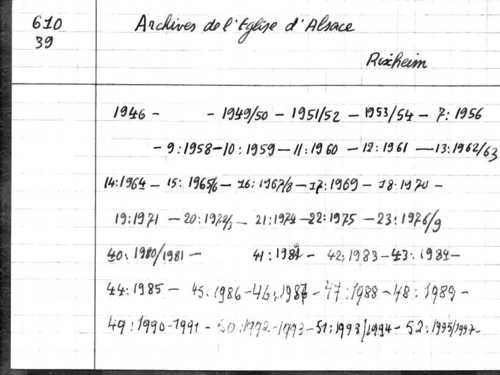 610
39
Archives de l'Eglise d'Alsace
Rixheim
1946 - - 1949/50 - 1951/52 - 1953/54 - 7: 1956
- 9:1958 - 10: 1959 - 11: 1960 - 12: 1961 - 13: 1962/63
14: 1964 - 15: 1965/6 - 16: 1967/8 - 17: 1969 - 18: 1970 -
19: 1971 - 20: 1972/3 - 21: 1974 - 22: 1975 - 23: 1976/9
40: 1980/1981 - 41: 1982 - 42: 1983 - 43: 1984 -
44: 1985 - 45: 1986 - 46: 1987 - 47: 1988 - 48: 1989 -
49: 1990-1991 - 50: 1992-1993 - 51: 1993/1994 - 52: 1995/1997-